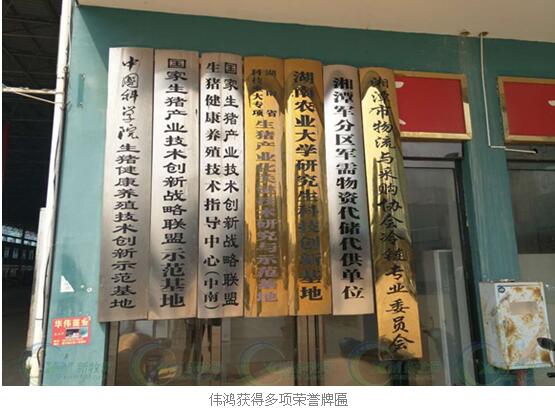 中国科学院生猪健康养殖技术创新示范基地
国家生猪产业技术创新战略联盟示范基地
国家生猪产业技术创新战略联盟
生猪健康养殖技术指导中心(中南)
湖南省
科技重大专项
湖南农业大学研究生科技创新基地
湘潭军分区军需物资代储代供单位
湘潭市物流与采购协会冷链专业委员会
华伟蓬业
伟鸿获得多项荣誉牌匾